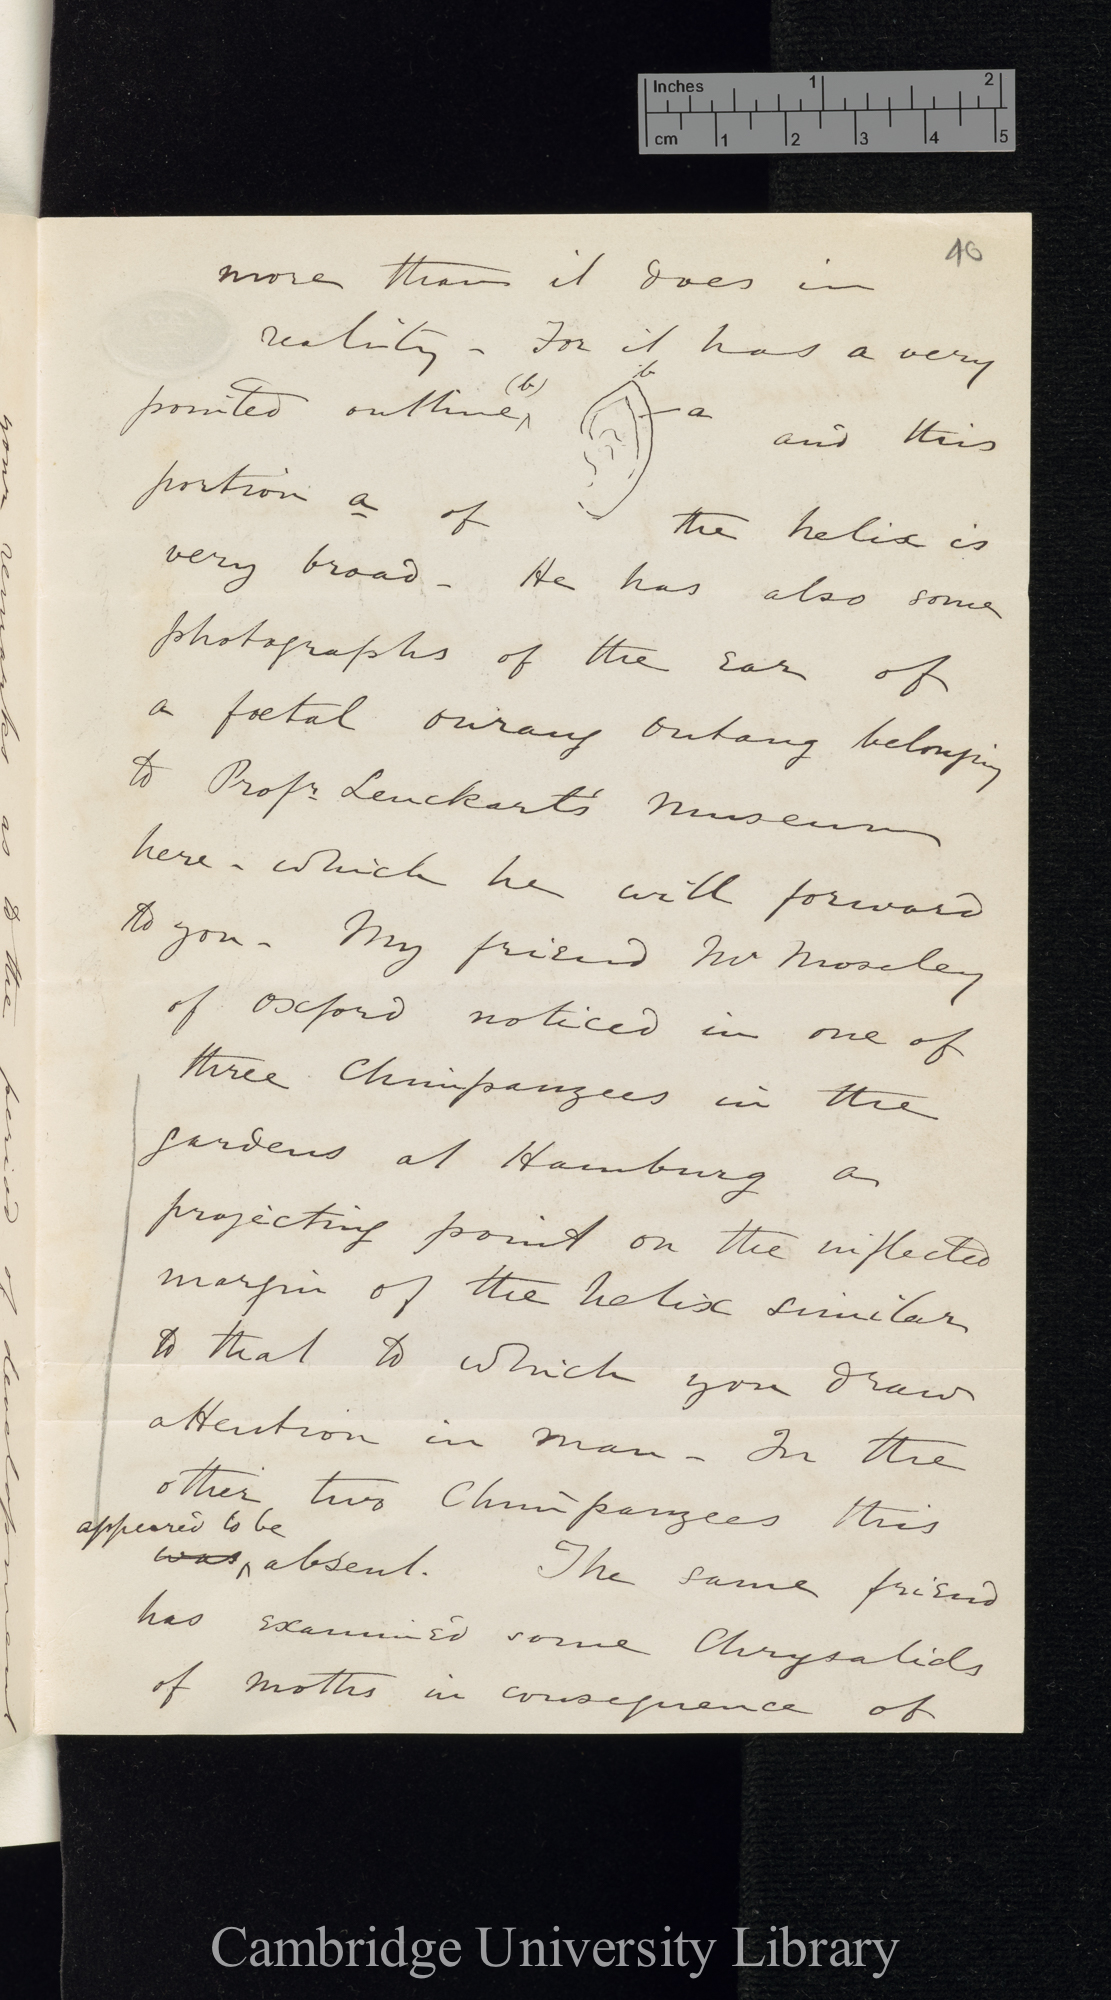 Inches 1 2
cm 1 2 3 4 5
40
more than it does in
reality - For it has a very
pointed outline (b) b a and this
portion a of the helix is
very broad - He has also some
photographs of the ear of
a foetal ourang outang belonging
to Profr. Leuckart's museum
here - which he will forward
to you - My friend Mr Moseley
of Oxford noticed in one of
three Chimpanzees in the
gardens at Hamburg a
projecting point on the inflected
margin of the helix similar
to that to which you draw
attention in man - In the
other two Chimpanzees this
appeared to be
was absent. The same friend
has examined some Chrysalids
of moths in consequence of
your remarks as to the period of development
Cambridge University Library